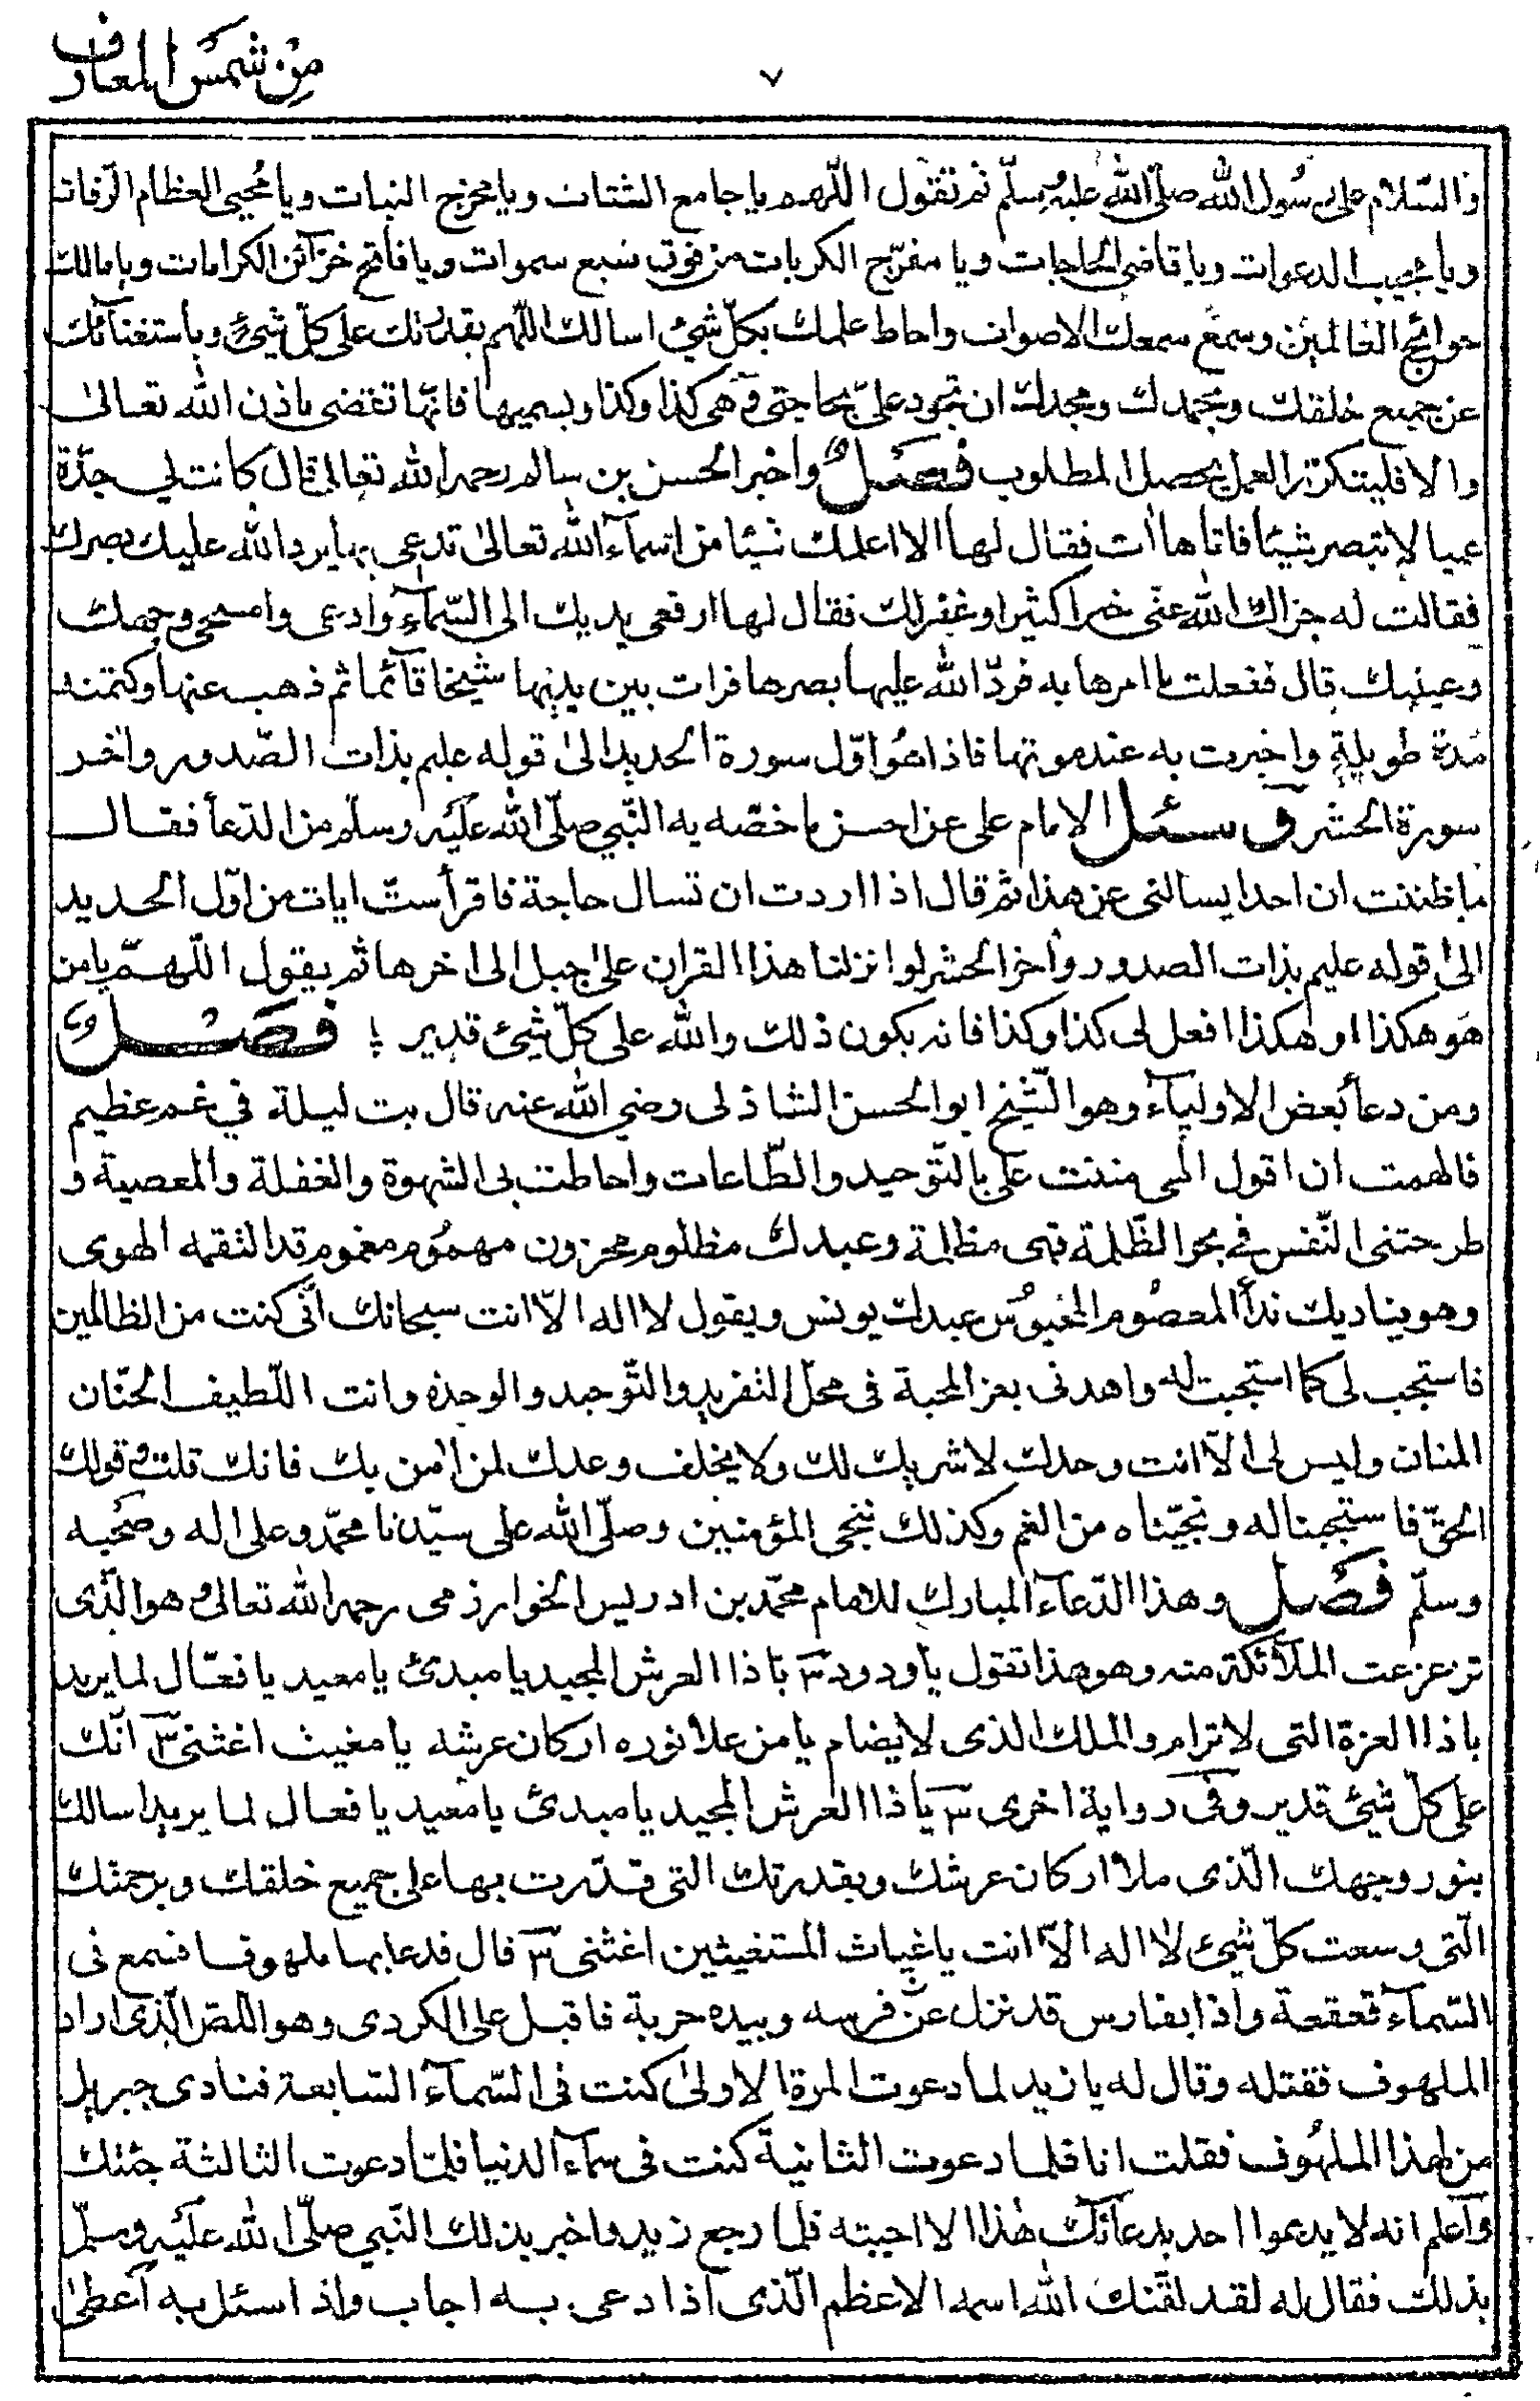 من شمس المعارف
٧
والسّلام على رسول الله صلّى الله عليه وسلّم ثم تقول اللّهم يا جامع الشتات ويا مخرج النبات ويا محيي العظام الرّفات
ويا مجيب الدعوات ويا قاضى الحاجات ويا مفرّج الكربات من فوق سبع سموات ويا فاتح خزآئن الكرامات ويا مالك
حوائج العالمين وسمع سمعك الاصوات واحاط علمك بكلّ شيئ اسالك اللّهم بقدرتك على كلّ شيئ وباستغنآئك
عن جميع خلقك وبحمدك ومجدك ان تجود علىّ بحاجتى وهى كذا وكذا ويسميها فانّها تقضى باذن الله تعالى
والا فليتكرّر العمل يحصل المطلوب فصل واخبر الحسن بن سالم رحمه الله تعالى قال كانت لي جدّة
عميا لا تبصر شيئا فاتاها ات فقال لها الا اعلمك شيئا من اسمآء الله تعالى تدعى بها يرد الله عليك بصرك
فقالت له جزاك الله عنّى خيرا كثيرا وغفر لك فقال لها ارفعى يديك الى السّمآء وادعى وامسحى وجهك
وعينيك قال ففعلت ما امرها به فردّ الله عليها بصرها فرات بين يديها شيخا قآئما ثم ذهب عنها وكتمته
مدة طويلة واخبرت به عند موتها فاذا هو اوّل سورة الحديد الى قوله عليم بذات الصّدور واخر
سورة الحشر وسئل الامام على عن احسن ما خصّه به النّبي صلّى الله عليه وسلّم من الدّعآ فقال
ما ظننت ان احدا يسالنى عن هذا ثم قال اذا اردت ان تسال حاجة فاقرأ ستّ ايات من اوّل الحديد
الى قوله عليم بذات الصدور واخر الحشر لو انزلنا هذا القران على جبل الى اخرها ثم يقول اللّهمّ يا من
هو هكذا او هكذا افعل لى كذا وكذا فانه يكون ذلك والله على كلّ شيئ قدير فصل
ومن دعآ بعض الاوليآء وهو الشّيخ ابو الحسن الشاذلى رضي الله عنه قال بت ليلة في غم عظيم
فالهمت ان اقول الهى مننت على بالتّوحيد والطّاعات واحاطت بى الشهوة والغفلة والمعصية و
طرحتنى النّفس فى بحر الظّلمة فهى مظلمة وعبدك مظلوم محزون مهموم مغموم قد التقمه الهوى
وهو يناديك ندآ المعصوم المحبوس عبدك يونس ويقول لا اله الاّ انت سبحانك انّى كنت من الظالمين
فاستجب لى كما استجبت له واهدنى بعز المحبة فى محلّ التفريد والتّوحيد والوحدة وانت اللّطيف الحنّان
المنان وليس لى الاّ انت وحدك لا شريك لك ولا يخلف وعدك لمن امن بك فانك قلت وقولك
الحقّ فاستجبنا له ونجّيناه من الغم وكذلك ننجى المؤمنين وصلّى الله على سيّدنا محمّد وعلى اله وصحبه
وسلّم فصل وهذا الدّعآء المبارك للامام محمّد بن ادريس الخوارزمى رحمه الله تعالى وهو الّذى
تزعزعت الملآئكة منه وهو هذا تقول يا ودود ٣ يا ذا العرش المجيد يا مبدئ يا معيد يا فعّال لما يريد
يا ذا العزة التى لا ترام والملك الذى لا يضام يا من علا نوره اركان عرشه يا مغيث اغثنى ٣ انّك
على كلّ شيئ قدير وفى رواية اخرى ٣ يا ذا العرش المجيد يا مبدئ يا معيد يا فعال لما يريد اسالك
بنور وجهك الّذى ملا اركان عرشك وبقدرتك التى قدّرت بها على جميع خلقك وبرحمتك
الّتى وسعت كلّ شيئ لا اله الاّ انت يا غياث المستغيثين اغثنى ٣ قال فدعا بها ملهوفا فسمع فى
السّمآء قعقعة واذا بفارس قد نزل عن فرسه وبيده حربة فاقبل على الكردى وهو اللّص الّذى اراد
الملهوف فقتله وقال له يا زيد لما دعوت المرة الاولى كنت فى السّمآء السّابعة فنادى جبريل
من لهذا الملهوف فقلت انا فلما دعوت الثانية كنت فى سمآء الدنيا فلمّا دعوت الثالثة جئتك
وآعلم انه لا يدعوا احد بدعآئك هذا الا اجبته فلما رجع زيد واخبر بذلك النّبي صلّى الله عليه وسلّم
بذلك فقال له لقد لقّنك الله اسمه الاعظم الّذى اذا دعى به اجاب واذا سئل به اعطى